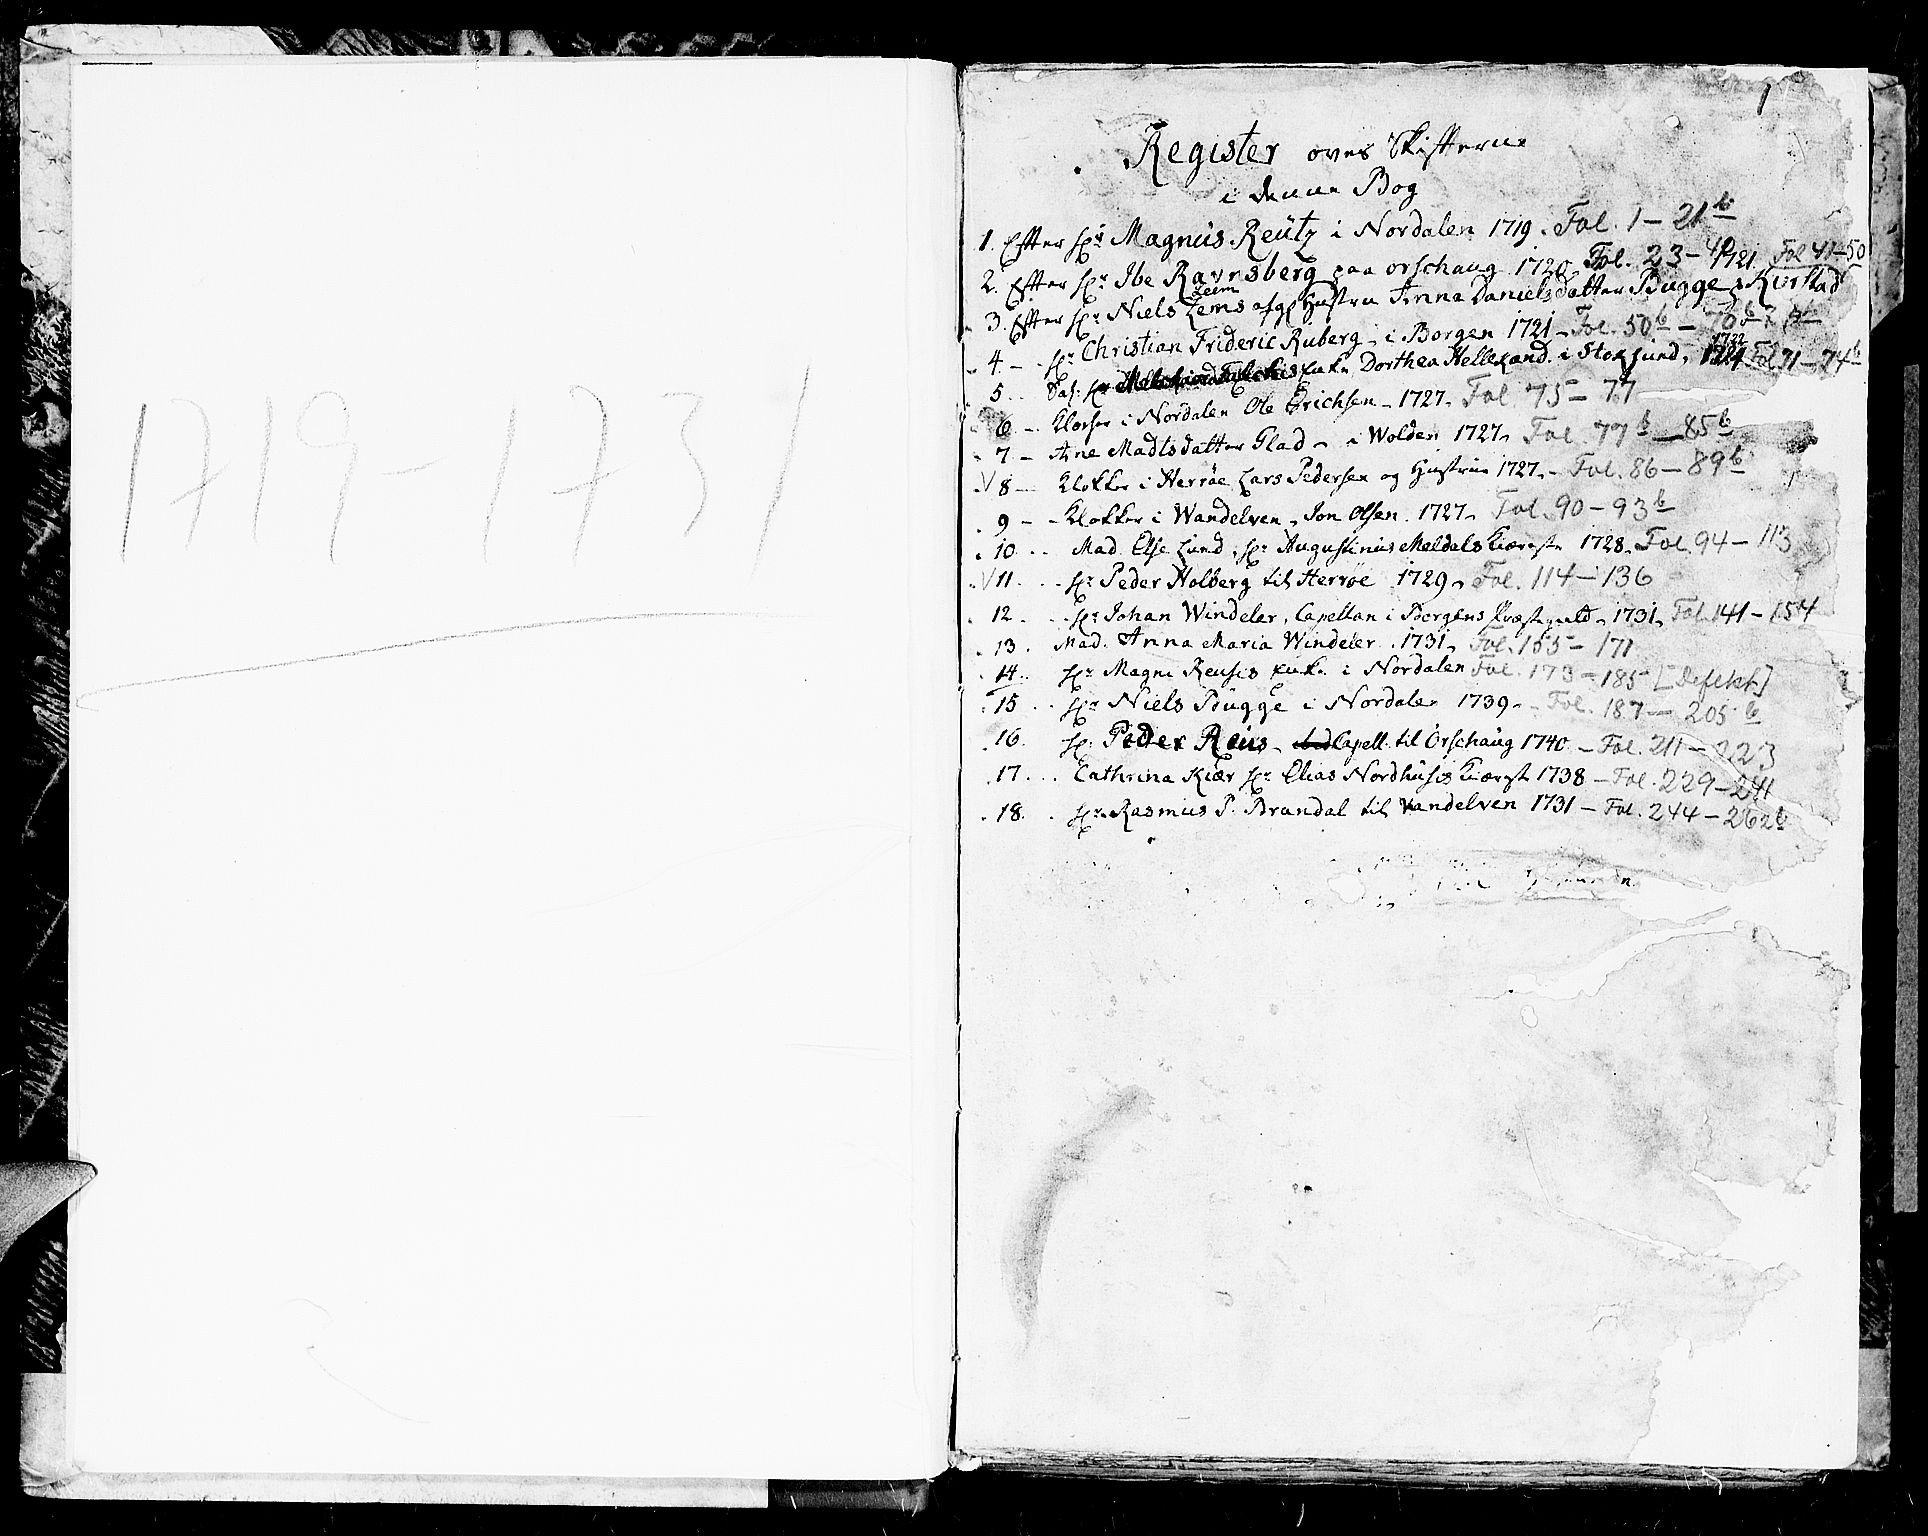 1719-1731
1
Register over Skifterne
i denne Bog
1. Efter Hr Magnus Reütz i Nordalen 1719. Fol. 1-21b
2. Efter Hr Ibe Ravnsberg paa Orschaug 1720 Fol. 23-40
3. Efter Hr Niels Lems Leem afg. Hustru Anna Daniels datter Bugge 1721 Fol 41-50
4. - Hr Christian Frideric Ruberg i Borgen 1721 - Fol. 50b - 70b
5. Sal. Hr Enke Dorthea Hellesand i Stoksund, 1722 Fol 71-74b
6 - Klocker i Nordalen Ole Erichsen - 1727. Fol. 75-77
7 - Ane Madtsdatter Glad - i Wolden 1727. Fol. 77b-85b
V 8 - Klokker i Herröe Lars Pedersen og Hustrue 1727. - Fol. 86-89b
9 - Klokker i Wandelven, Jon Olsen. 1727. Fol. 90-93b
10. Mad. Else Lund, Hr Augustinus Meldals Kiæreste 1728. Fol. 94-113
V 11. Hr Peder Holberg til Herröe 1729. Fol. 114-136
12. Hr Johan Windeler, Capellan i Borgens Præstegield. 1731. Fol. 141-154
13. Mad. Anna Maria Windeler. 1731. Fol. 155-171
14. Hr Magni Reusis Enke i Nordalen Fol. 173-185 [Defekt]
15. Hr Niels Bügge i Nordalen 1739. - Fol. 187-205b
16. Hr. Peder Reüs - Capell. til Orschaüg 1740 - Fol. 211-223
17. Cathrina Kiær Hr Elias Nordhüsis Kiærest 1738 - Fol. 229-241
18. Hr Rasmus P. Brandal til Vandelven 1731 - Fol. 244-262b